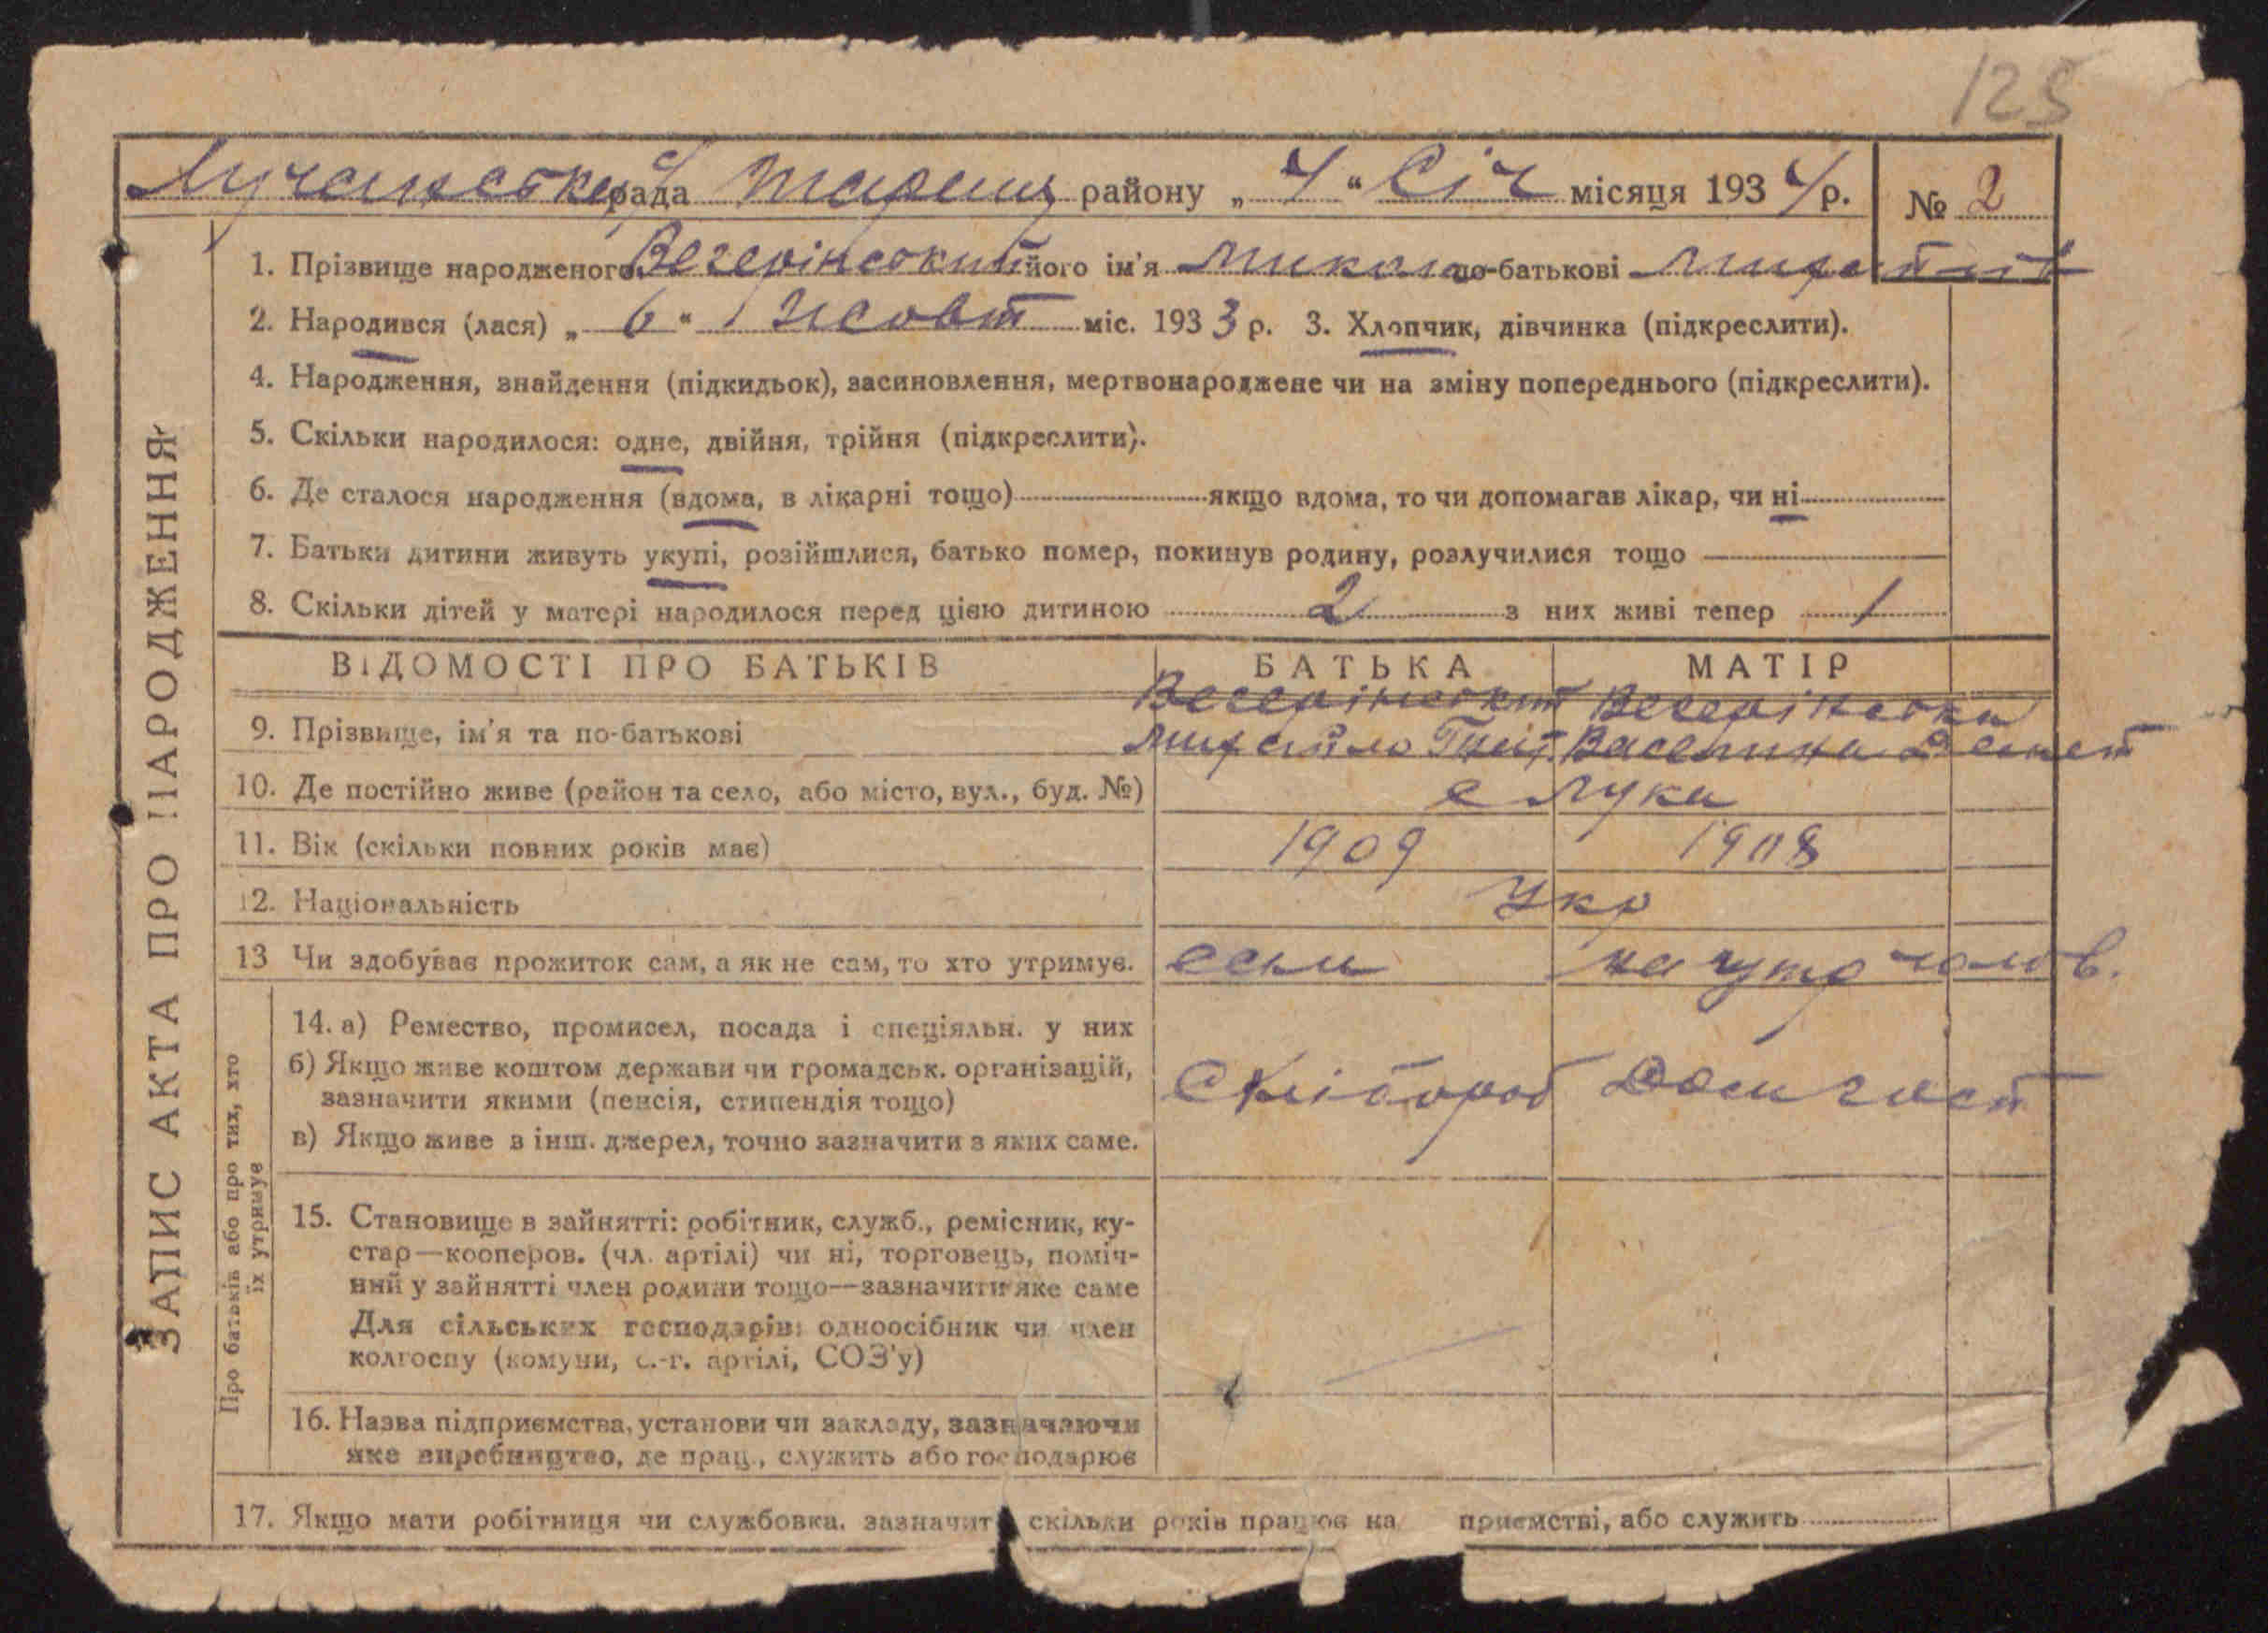 125
Лучанська с/рада Таращ району „ 4 “ Січ місяця 1934 р. № 2
1. Прізвище народженого Вечерінський його ім'я Микола по-батькові Михайл
2. Народився (лася) „ 6 “ Жовт міс. 1933 р. 3. Хлопчик, дівчинка (підкреслити).
4. Народження, знайдення (підкидьок), засиновлення, мертвонароджене чи на зміну попереднього (підкреслити).
5. Скільки народилося: одне, двійня, трійня (підкреслити).
6. Де сталося народження (вдома, в лікарні тощо) якщо вдома, то чи допомагав лікар, чи ні
7. Батьки дитини живуть укупі, розійшлися, батько помер, покинув родину, розлучилися тощо
8. Скільки дітей у матері народилося перед цією дитиною 2 з них живі тепер 1
ЗАПИС АКТА ПРО НАРОДЖЕННЯ
ВІДОМОСТІ ПРО БАТЬКІВ БАТЬКА МАТІР
Вечерінський Вечерінська
9. Прізвище, ім'я та по-батькові Михайло Василина
10. Де постійно живе (район та село, або місто, вул., буд. №) с Лука
11. Вік (скільки повних років має) 1909 1908
12. Національність Укр
13 Чи здобуває прожиток сам, а як не сам, то хто утримує. сам на утр чолов.
Про батьків або про тих, хто
їх утримує
14. а) Ремество, промисел, посада і спеціяльн. у них
б) Якщо живе коштом держави чи громадськ. організацій,
зазначити якими (пенсія, стипендія тощо) Хлібороб Дом госп
в) Якщо живе з інш. джерел, точно зазначити з яких саме.
15. Становище в зайнятті: робітник, служб., ремісник, ку-
стар—кооперов. (чл. артілі) чи ні, торговець, поміч-
ний у зайнятті член родини тощо—зазначити яке саме
Для сільських господарів: одноосібник чи член
колгоспу (комуни, с.-г. артілі, СОЗ'у)
16. Назва підприємства, установи чи закладу, зазначаючи
яке виробництво, де прац., служить або господарює
17. Якщо мати робітниця чи службовка, зазначит скільки років працює на приємстві, або служить